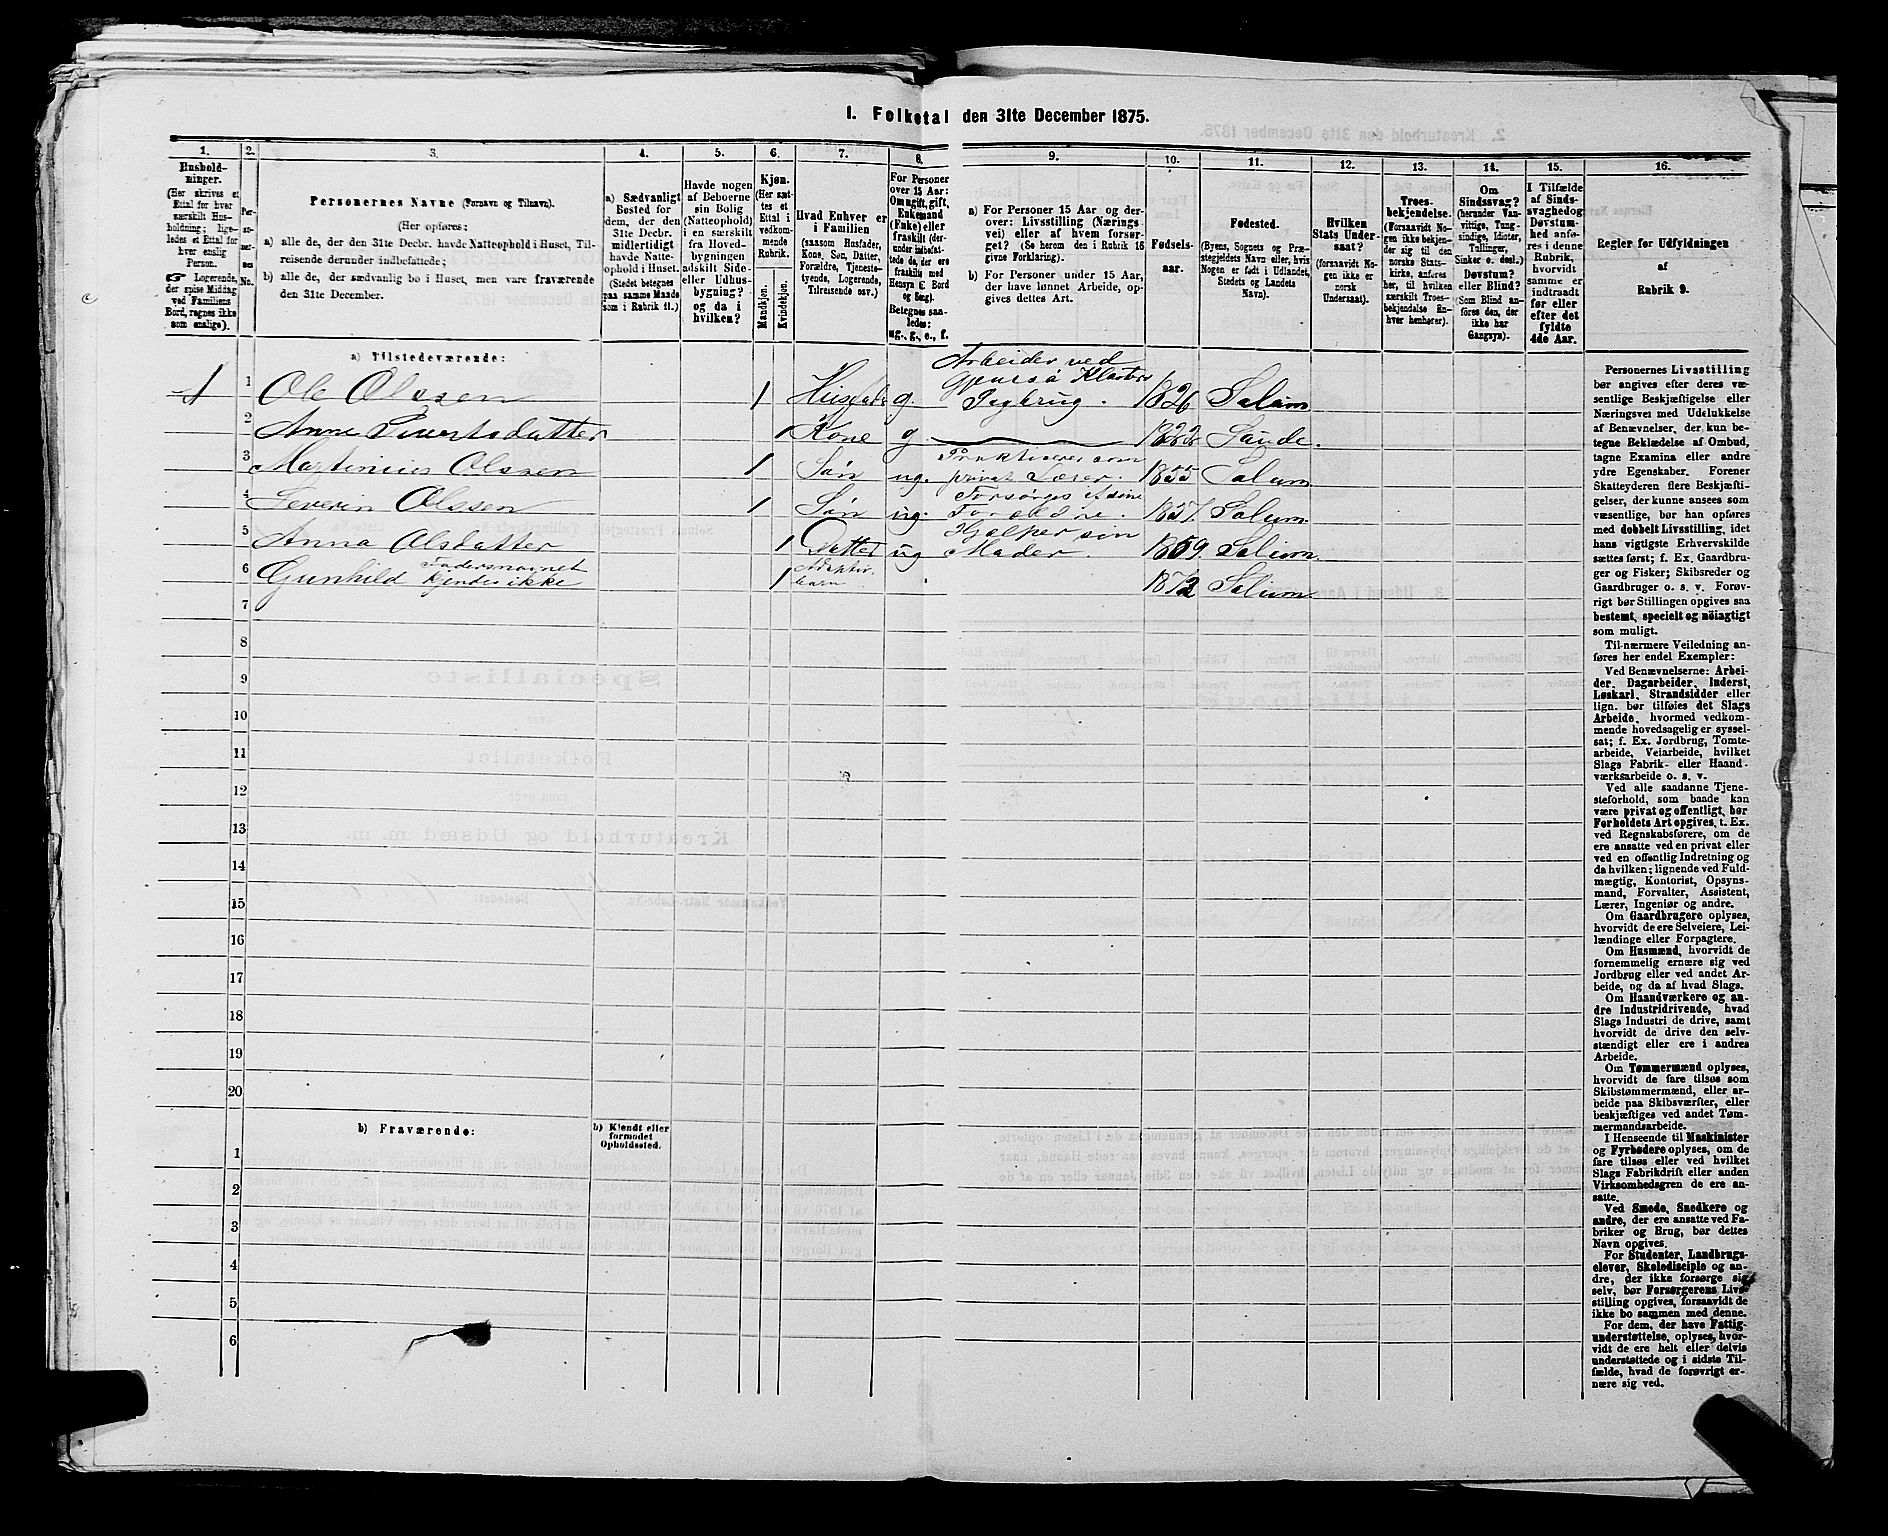 1. Folketal den 31te December 1875.
1.
2.
3.
4.
5.
6.
7.
8.
9.
10.
11.
12.
13.
14.
15.
16.
Hushold-
ninger.
(Her skrives et
Ettal for hver
særskilt Hus-
holdning; lige-
ledes et Ettal for
hver enslig
Person.
☞ Logerende,
der spise Middag
ved Familiens
Bord, regnes ikke
som enslige).
Per-
so-
ner-
nes
No.
Personernes Navne (Fornavn og Tilnavn).
(Her opføres:
a) alle de, der den 31te Decbr. havde Natteophold i Huset, Til-
reisende derunder indbefattede;
b) alle de, der sædvanlig bo i Huset, men vare fraværende
den 31te December.
a) Sædvanligt
Bosted for
dem, der den
31te Decbr.
midlertidigt
havde Natte-
ophold i Huset.
(Stedet betegnes
paa samme Maade
som i Rubrik 11.)
Havde nogen
af Beboerne
sin Bolig
(Natteophold)
i en særskilt
fra Hoved-
bygningen
adskilt Side-
eller Udhus-
bygning?
og da i
hvilken?
Kjøn.
(Her sæt-
tes et
Ettal i
vedkom-
mende
Rubrik.
Mandkjøn.
Kvindekjøn.
Hvad Enhver er
i Familien
(saasom Husfader,
Kone, Søn, Datter,
Forældre, Tjeneste-
tyende, Logerende,
Tilreisende osv.)
For Personer
over 15 Aar:
Om ugift, gift,
Enkemand
(Enke) eller
fraskilt (der-
under indbefat-
tede de, der ere
fraskilte med
Hensyn til Bord
og Seng).
Betegnes saa-
ledes:
ug., g., e., f.
a) For Personer 15 Aar og der-
over: Livsstilling (Nærings-
vei) eller af hvem forsør-
get? (Se herom den i Rubrik 16
givne Forklaring).
b) For Personer under 15 Aar,
der have lønnet Arbeide, op-
gives dettes Art.
Fødsels-
aar.
Fødested.
(Byens, Sognets og Præ-
stegjeldets Navn eller, hvis
Nogen er født i Udlandet,
Stedets og Landets
Navn).
Hvilken
Stats Under-
saat?
(forsaavidt No-
gen ikke er
norsk
Undersaat).
Troes-
bekjendelse.
(Forsaavidt No-
gen ikke bekjen-
der sig til den
norske Stats-
kirke, anføres
her, til hvilken
særskilt Troes-
bekjendelse En-
hver henhører).
Om
Sindssvag?
(herunder Van-
vittige, Tung-
sindige, Idioter,
Tullinger,
Sinker o. desl.)
Døvstum?
eller Blind?
(Som Blind an-
føres den, der
ikke har
Gangsyn).
I Tilfælde
af Sinds-
svaghed og
Døvstum-
hed anfø-
res i denne
Rubrik,
hvorvidt
samme er
indtraadt
før eller
efter det
fyldte
4de Aar.
Regler for Udfyldningen
af
Rubrik 9.
a) Tilstedeværende:
1 1 Ole Olssen 1 Husfader g. Arbeider ved Klosters Teglbrug. 1826 Solum
2 Anne Sivertsdatter 1 Kone g 1822 Sande.
3 Martinius Olssen 1 Søn ug. Praktiserer som privat Læser. 1855 Solum
4 Severin Olssen 1 Søn ug. Forsørges af sine Forældre. 1857. Solum.
5 Anna Olsdatter 1 Datter ug Hjælper sin Moder. 1859. Solum.
6 Gunhild Fadersnavnet kjendes ikke 1 Adoptiv-barn 1872 Solum
7
8
9
10
11
12
13
14
15
16
17
18
19
20
b) Fraværende:
b) Kjendt eller
formodet
Opholdssted.
1
2
3
4
5
6
Personernes Livsstilling
bør angives efter deres væ-
sentlige Beskjæftigelse eller
Næringsvei med Udelukkelse
af Benævnelser, der kun be-
tegne Beklædelse af Ombud,
tagne Examina eller andre
ydre Egenskaber. Forener
Skatteyderen flere Beskjæfti-
gelser, der kunne ansees som
væsentlige, bør han opføres
med dobbelt Livsstilling, idet
hans vigtigste Erhvervskilde
sættes først; f. Ex. Gaardbru-
ger og Fisker; Skibsreder og
Gaardbruger o. s. v. Forøv-
rigt bør Stillingen opgives saa
bestemt, specielt og nøiagtigt
som muligt.
Til nærmere Veiledning an-
føres her endel Exempler:
Ved Benævnelserne: Arbei-
der, Dagarbeider, Inderst,
Løskarl, Strandsidder eller
lign. bør tilføies det Slags
Arbeide, hvormed vedkom-
mende hovedsagelig er syssel-
sat; f. Ex. Jordbrug, Tomte-
arbeide, Veiarbeide, hvilket
Slags Fabrik- eller Haand-
værksarbeide o. s. v.
Ved alle saadanne Tjene-
steforhold, som baade kan
være privat og offentligt, bør
Forholdets Art opgives, t. Ex.
ved Regnskabsførere, om de
ere ansatte ved en privat eller
ved en offentlig Indretning og
da hvilken; lignende ved Fuld-
mægtig, Kontorist, Opsyns-
mand, Forvalter, Assistent,
Lærer, Ingeniør og andre.
Om Gaardbrugere oplyses,
hvorvidt de ere Selveiere, Lei-
lændinge eller Forpagtere.
Om Husmænd, hvorvidt de
fornemmelig ernære sig ved
Jordbrug eller ved andet Ar-
beide, og da af hvad Slags.
Om Haandværkere og an-
dre Industridrivende, hvad
Slags Industri de drive, samt
hvorvidt de drive den selv-
stændigt eller ere i andres
Arbeide.
Om Tømmermænd oplyses,
hvorvidt de fare tilsøs som
Skibstømmermænd, eller ar-
beide paa Skibsværfter, eller
beskjæftiges ved andet Tøm-
mermandsarbeide.
I Henseende til Maskinister
og Fyrbødere oplyses, om de
fare tilsøs eller ved hvilket
Slags Fabrikdrift eller anden
Virksomhedsgren de ere an-
satte.
Ved Smede, Snedkere og
andre, der ere ansatte ved Fa-
briker og Brug, bør dettes
Navn opgives.
For Studenter, Landbrugs-
elever, Skoledisciple og an-
dre, der ikke forsørge sig
selv, bør Forsørgerens Livs-
stilling opgives, forsaavidt de
ikke bo sammen med denne.
For dem, der have Fattig-
understøttelse, oplyses, hvor-
vidt de ere helt eller delvis
understøttede og i sidste Til-
fælde, hvad de forøvrigt er-
nære sig ved.